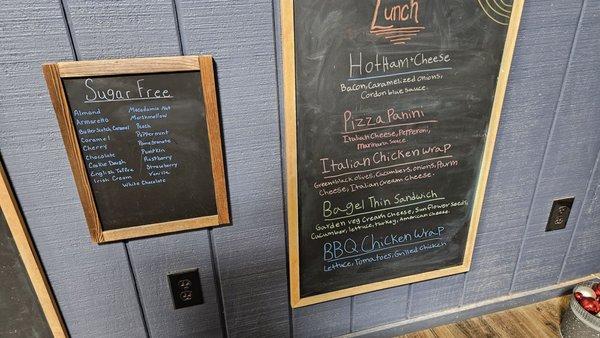 Sugar Free
Almond
Amaretto
Butter Scotch Caramel
Caramel
Cherry
Chocolate
Cookie Dough
English Toffee
Irish Cream
Macadamia Nut
Marshmallow
Peach
Peppermint
Pomegranate
Pumpkin
Raspberry
Strawberry
Vanilla
White Chocolate
Lunch
Hot Ham & Cheese
Bacon, Caramelized onions,
Cordon blue Sauce.
Pizza Panini
Italian Cheese, Pepperoni,
Marinara Sauce.
Italian Chicken Wrap
Green & black olives, Cucumbers, onions, Parm
Cheese, Italian cream cheese.
Bagel Thin Sandwich
Garden veg Cream Cheese, Sun flower Seeds,
Cucumber, lettuce, turkey, American cheese.
BBQ Chicken Wrap
Lettuce, Tomatoes, Grilled Chicken